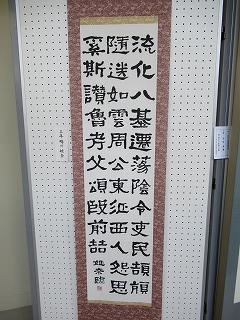 流化八基遷蕩陰令吏民頡頏
隨送如雲周公東征西人怨思
奚斯讃魯考父頌殷前喆
臨